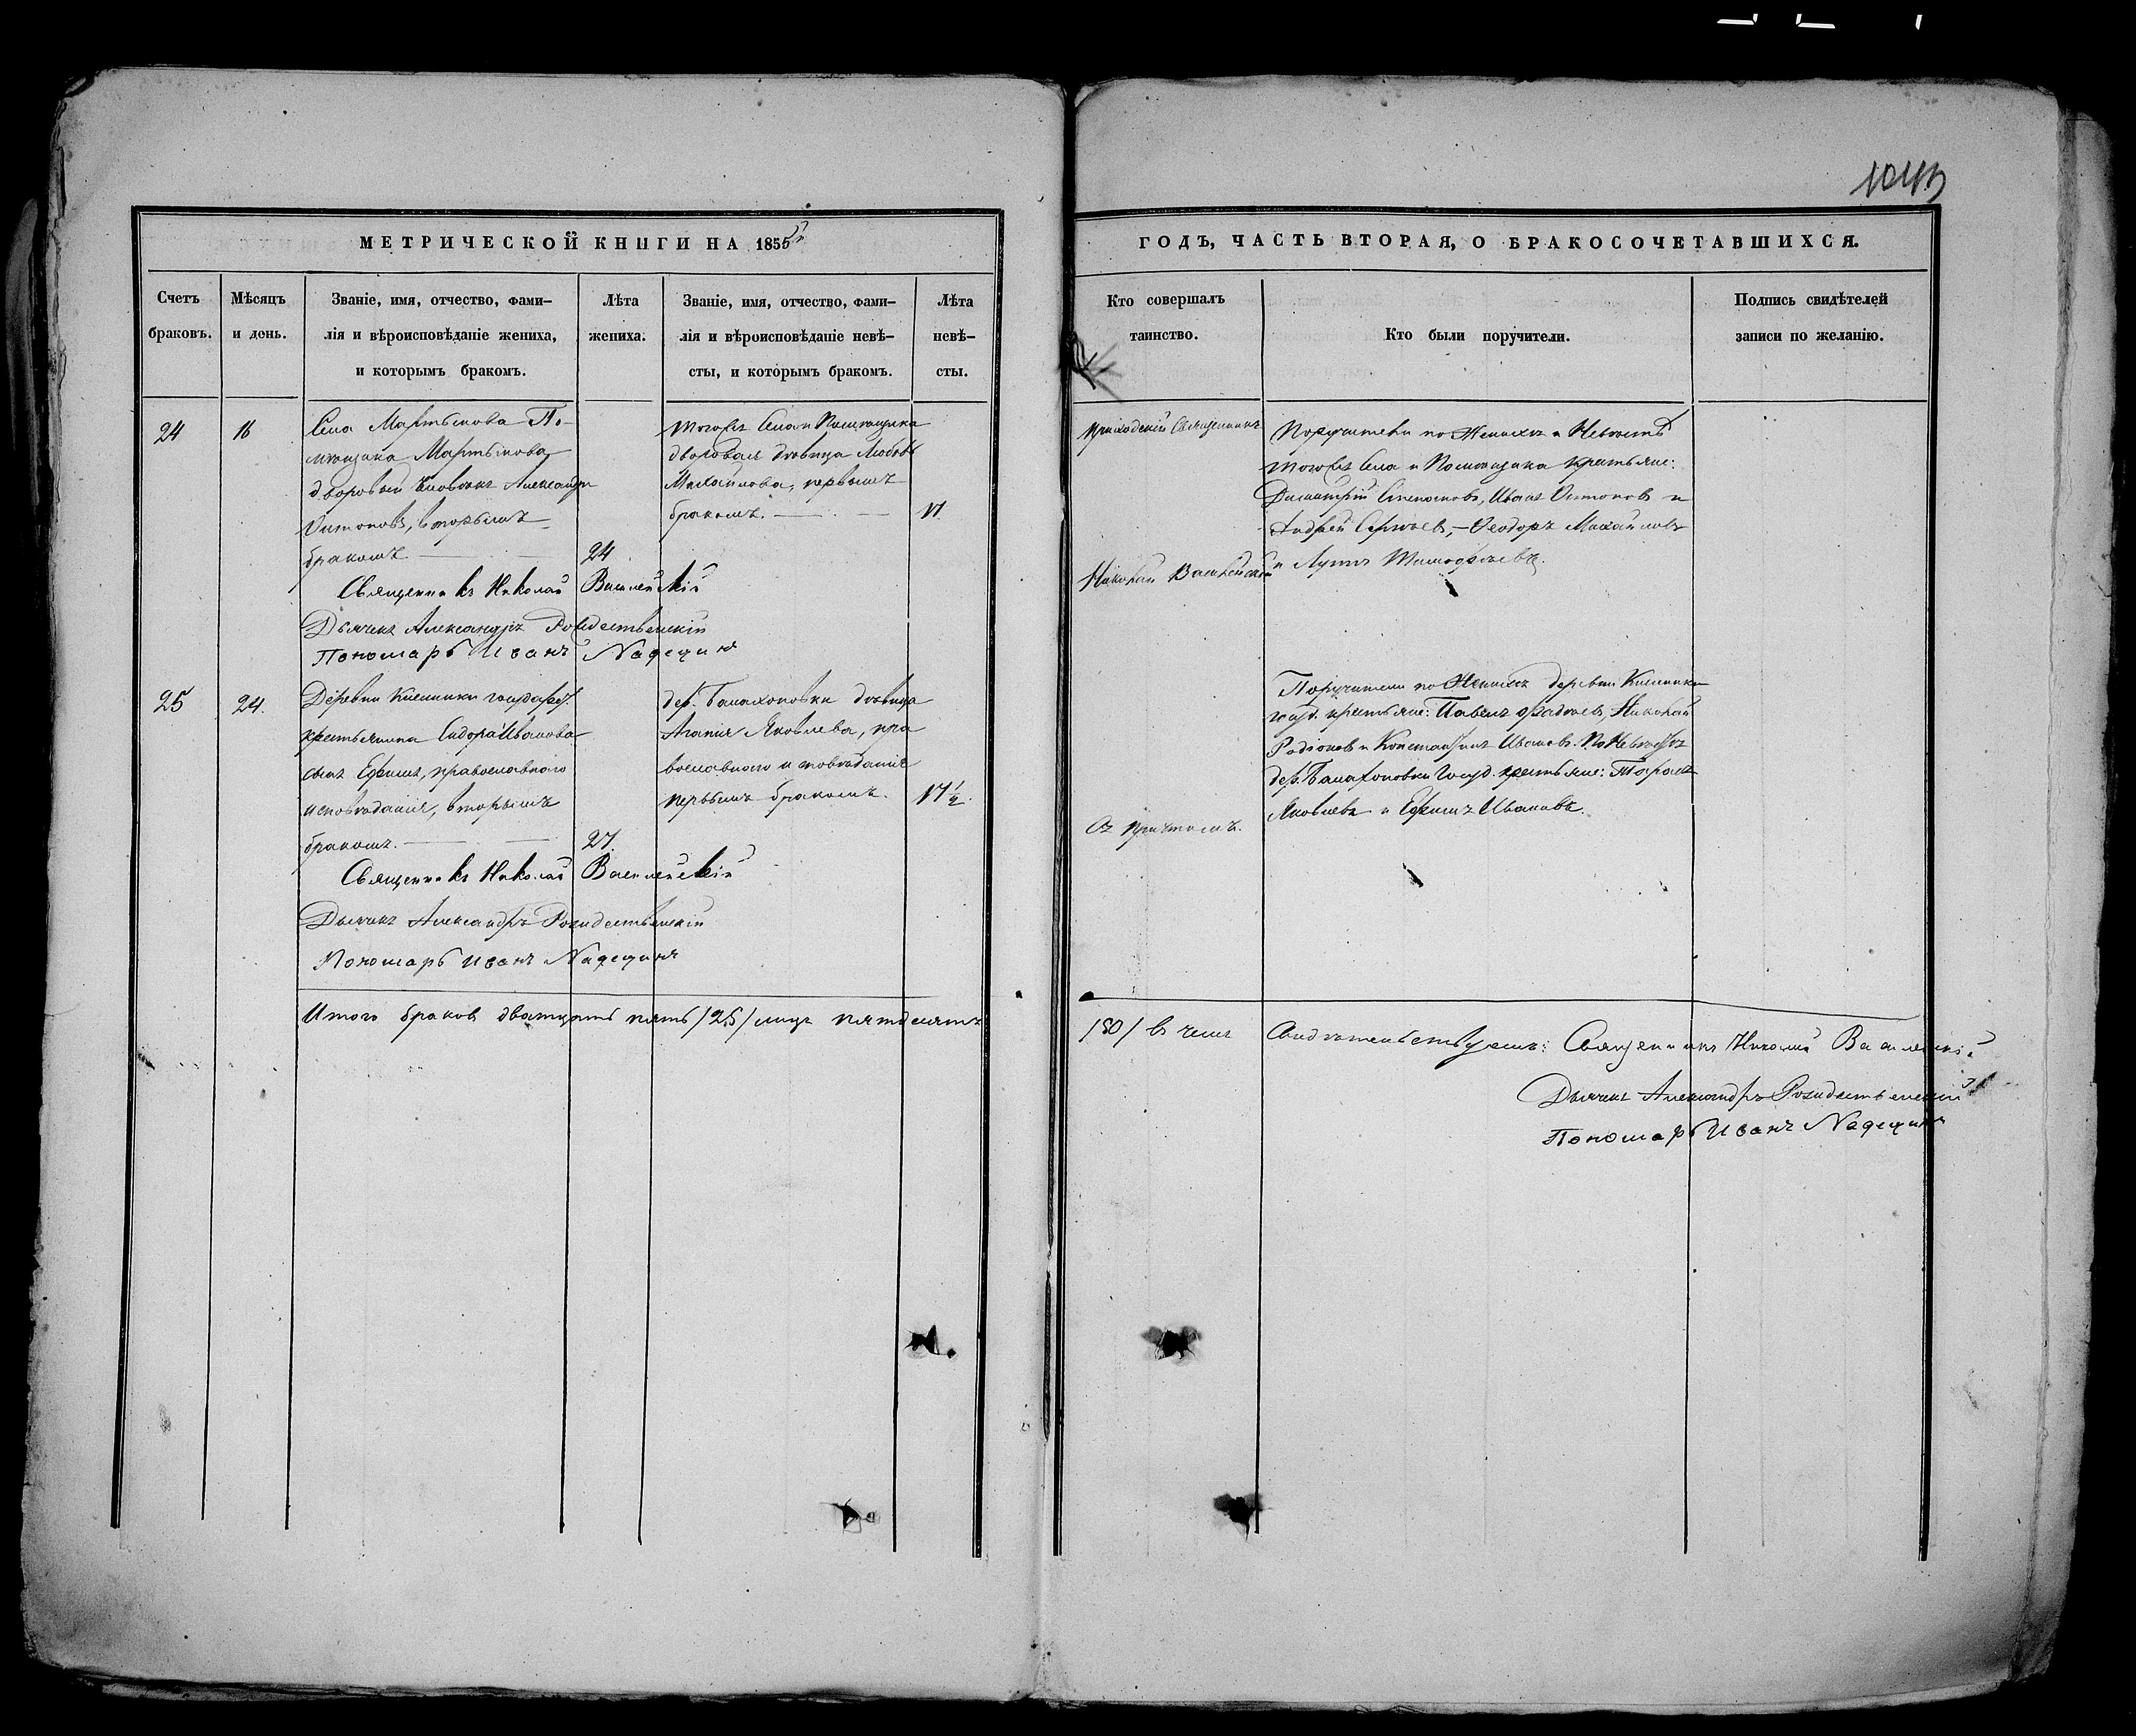 1043
МЕТРИЧЕСКОЙ КНИГИ НА 1855
Счетъ браковъ.
Мѣсяцъ и день.
Званіе, имя, отчество, фами-
лія и вѣроисповѣданіе жениха,
и которымъ бракомъ.
Лѣта жениха.
Званіе, имя, отчество, фами-
лія и вѣроисповѣданіе невѣ-
сты, и которымъ бракомъ.
Лѣта невѣ-
сты.
24
16
Села Мартынова По-
мѣщика Мартынова
дворовый человѣкъ Александръ
Антоновъ, вторымъ
бракомъ.
24
тогожъ Села и Помѣщика
дворовая дѣвица Любовь
Михайлова, первымъ
бракомъ.
17
Священникъ Николай Васильевскій
Дьячекъ Александръ Рождественскій
Пономарь Иванъ Надеждинъ
25
24.
Деревни государ.
крестьянина Сидора Иванова
сынъ Ефимъ, православнаго
исповѣданія, вторымъ
бракомъ.
27.
дер. Балахоновки дѣвица
Агапія Яковлева, пра
вославнаго исповѣданія
первымъ бракомъ.
17½.
Священникъ Николай Васильевскій
Дьячекъ Александръ Рождественскій
Пономарь Иванъ Надеждинъ
Итого браковъ дватцать пять /25/ лицъ пятдесятъ
ГОДЪ, ЧАСТЬ ВТОРАЯ, О БРАКОСОЧЕТАВШИХСЯ.
Кто совершалъ
таинство.
Кто были поручители.
Подпись свидѣтелей
записи по желанію.
Приходскій Священникъ
Николай Васильевскій
Поручители по Женихѣ и Невѣстѣ
тогожъ Села и Помѣщика крестьяне:
Димитрій Степановъ, Иванъ Антоновъ и
Андрей Сергѣевъ, – Ѳеодоръ Михайловъ
и Тимофѣевъ.
Поручители по Женихѣ деревни
госуд. крестьяне: Павелъ Фадѣевъ, Николай
Родіоновъ и Константинъ Ивановъ. По Невѣстѣ
дер. Балахоновки госуд. крестьяне: Тарасъ
Яковлевъ и Ефимъ Ивановъ.
съ причтомъ.
/50/ въ чемъ свидѣтельствуемъ: Священникъ Николай Васильевскій
Дьячекъ Александръ Рождественскій
Пономарь Иванъ Надеждинъ